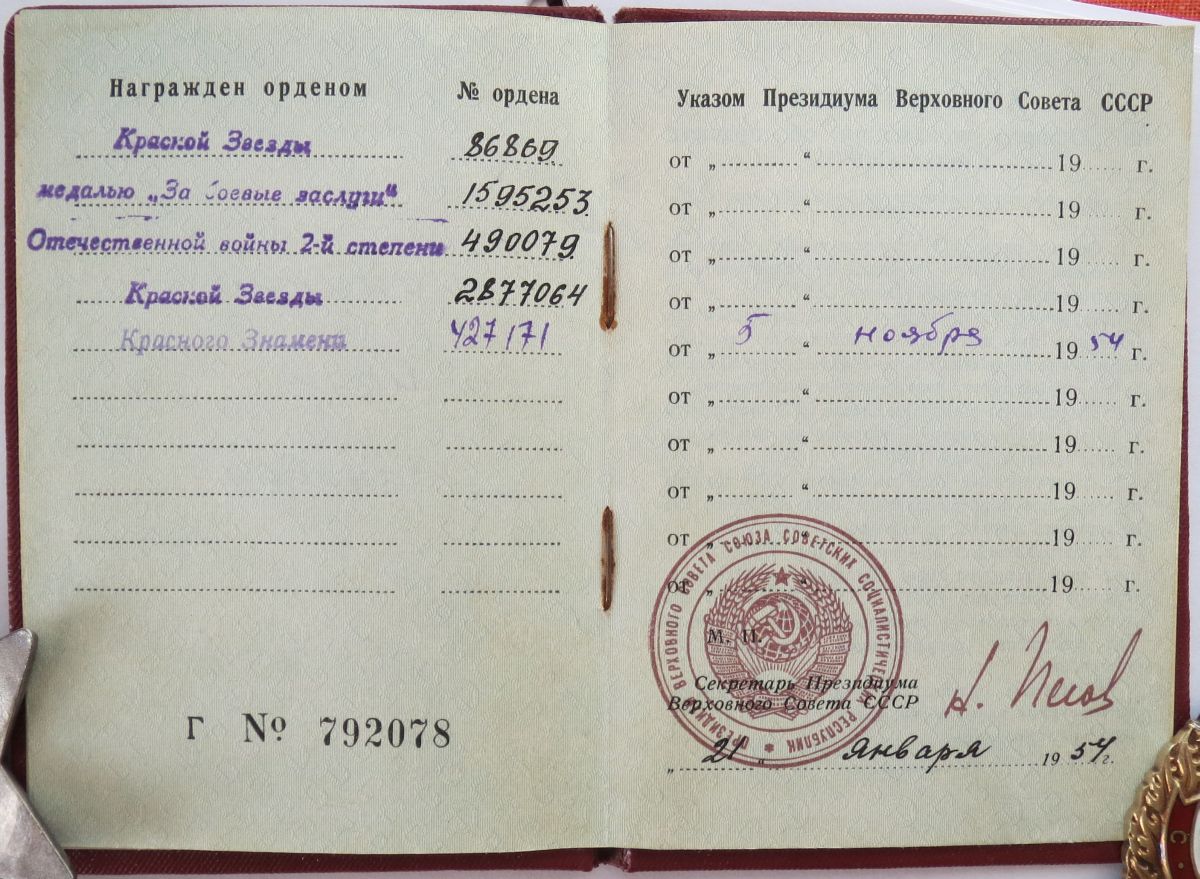 Награжден орденом № ордена
Красной Звезды 86869
медалью „За боевые заслуги“ 1595253
Отечественной войны 2-й степени 490079
Красной Звезды 2877064
Красного Знамени 427171
Г № 792078
Указом Президиума Верховного Совета СССР
от „ “ 19 г.
от „ “ 19 г.
от „ “ 19 г.
от „ “ 19 г.
от „ 5 “ ноября 19 54 г.
от „ “ 19 г.
от „ “ 19 г.
от „ “ 19 г.
от „ “ 19 г.
от „ “ 19 г.
ПРЕЗИДИУМ ВЕРХОВНОГО СОВЕТА СОЮЗА СОВЕТСКИХ СОЦИАЛИСТИЧЕСКИХ РЕСПУБЛИК
М. П.
Секретарь Президиума
Верховного Совета СССР
Н. Пегов
„ 21 “ января 19 54 г.